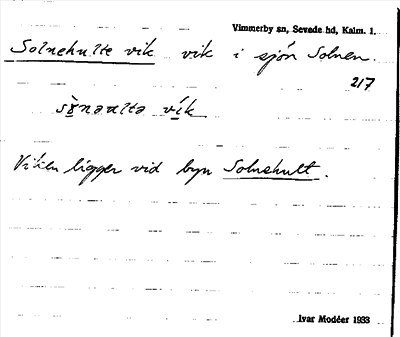 Vimmerby sn, Sevede hd, Kalm. l.
Solnehulte vik vik i sjön Solnen.
217
Viken ligger vid byn Solnehult.
Ivar Modéer 1933